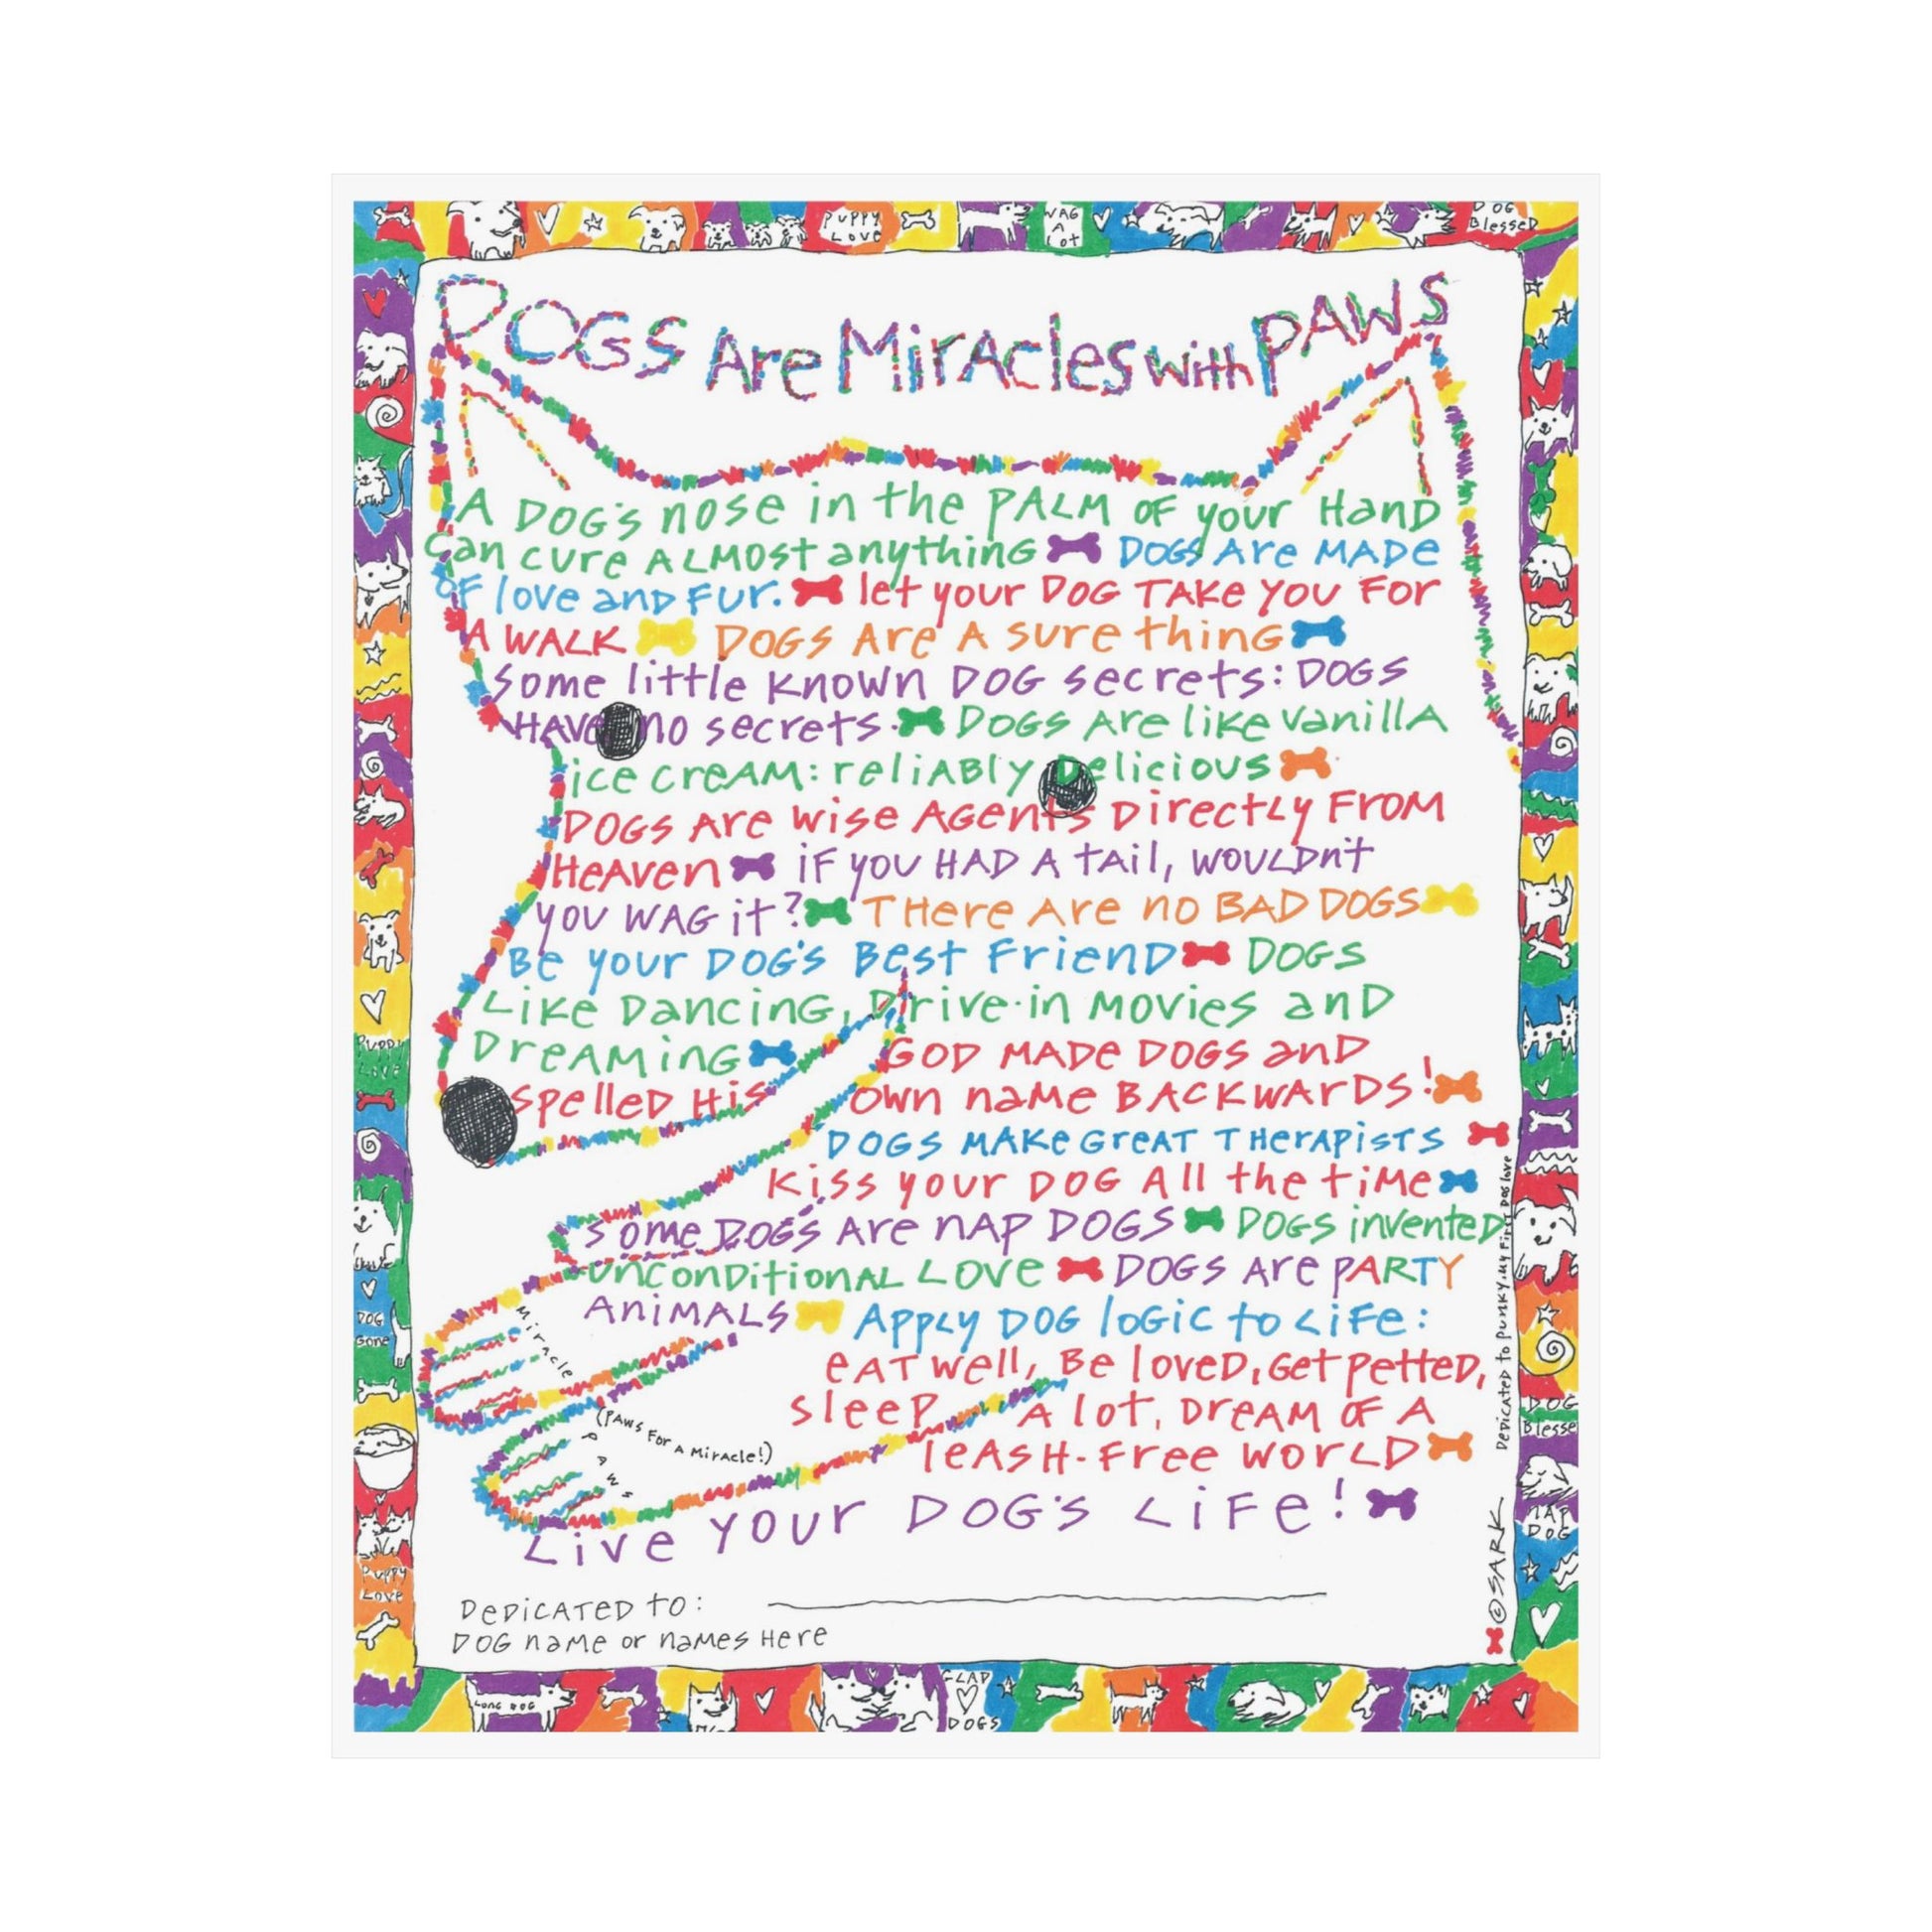 PUPPY
LOVE
WAG
A
LOT
DOG
Blessed
DOGS Are MirAcles with PAWS
A DOG'S nose in the PALM OF your HanD
Can cure ALMOst anything DOGS Are MADE
OF love and Fur. let your DOG TAKe YOU FOr
A WALK DOGS Are A sure thing
Some little Known DOG secrets: DOGS
HAVe no secrets. DOGS Are like vanillA
ice creAM: reliABly Delicious
DOGS Are wise Agents Directly From
HeAven iF you HAD A tAil, woulDn't
you WAG it? THere Are no BAD DOGS
Be your DOG'S Best FrienD DOGS
Like Dancing, Drive-in Movies and
DreAMing GOD MADE DOGS and
spelleD His own name BACKwArDS!
DOGS MAKe GreAT THerApists
Kiss your DOG All the tiMe
some DOGS Are nAp DOGS DOGS invented
unconDitionAL Love DOGS Are pARTY
AniMALS Apply DOG logic to LiFe:
eAT well, Be loveD, Get petteD,
sleep A lot, DreAM OF A
leASH-Free worLD
Live your DOG'S LiFe!
Miracle
(PAWS For A Miracle!)
PAWS
DeDicATeD to:
DOG name or names Here
DeDicateD to punky, my First DOG love
© SARK
PUPPY
DOG
Gone
Puppy
Love
DOG
Blesse
DOG
LonG DOG
GLAD
DOGS